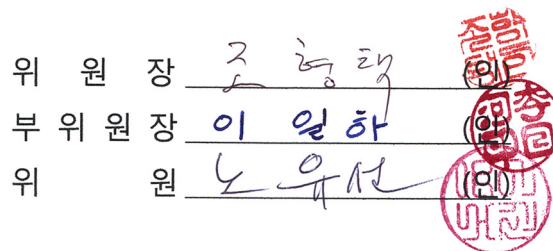 위 원 장 조 형 택 (인)
부 위 원 장 이 일 하 (인)
위 원 노 유 선 (인)